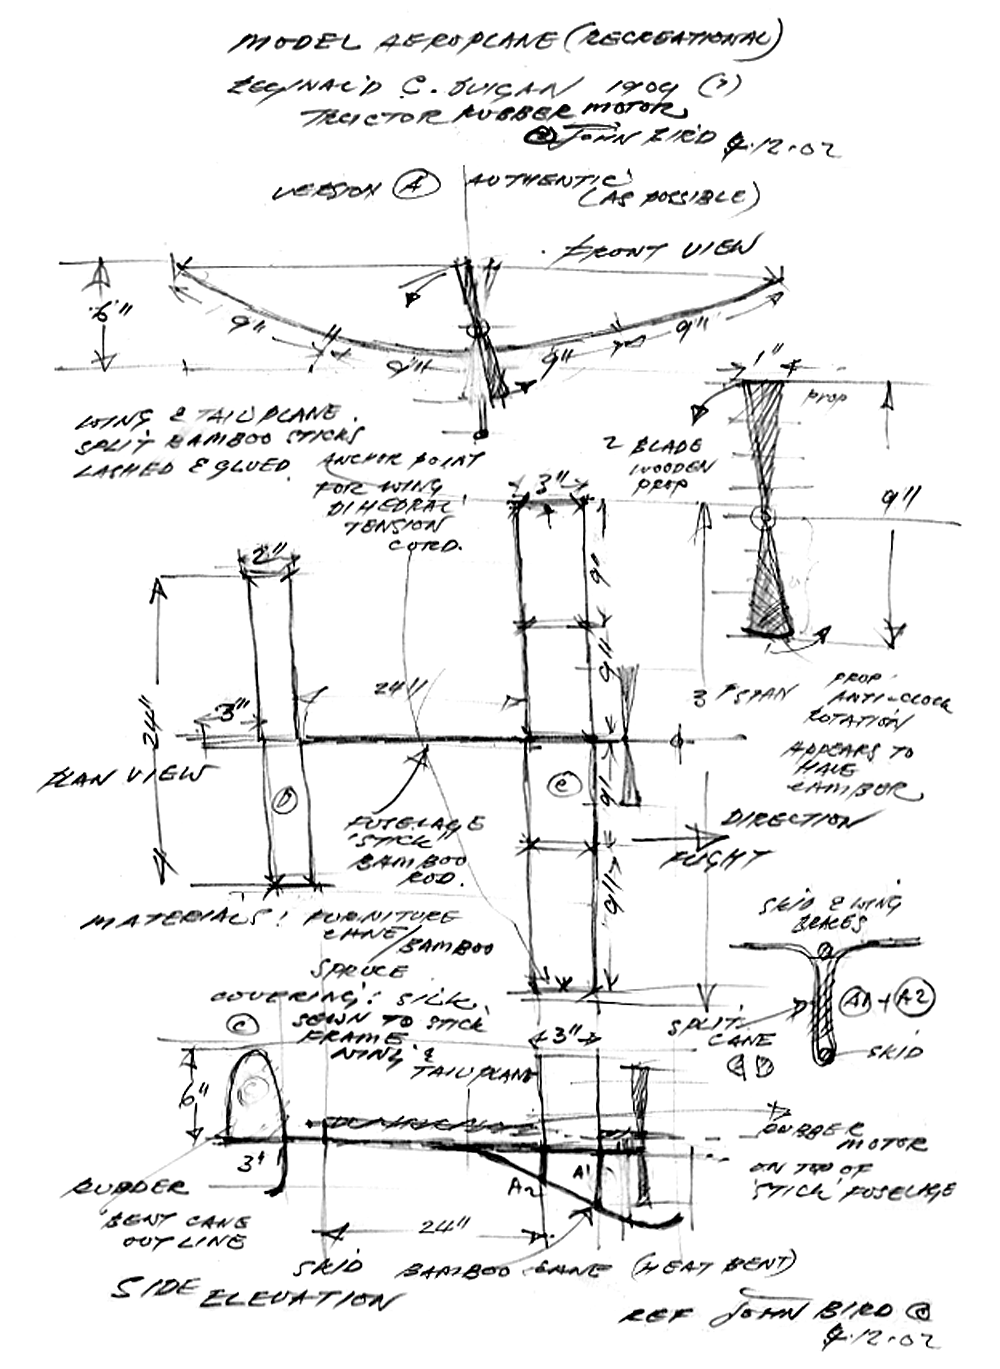 MODEL AEROPLANE (RECREATIONAL)
REGINALD C. DUIGAN 1909 (?)
TRACTOR RUBBER MOTOR
© JOHN BIRD 9.12.02
VERSION A AUTHENTIC
(AS POSSIBLE)
FRONT VIEW
6"
9"
9"
9"
9"
WING & TAILPLANE.
SPLIT BAMBOO STICKS
LASHED & GLUED.
ANCHOR POINT
FOR WING
DIHEDRAL
TENSION
CORD.
1"
PROP
2 BLADE
WOODEN
PROP
9"
3"
2"
9"
9"
9"
9"
24"
24"
3"
3' SPAN
PROP
ANTI-CLOCK
ROTATION
APPEARS TO
HAVE
CAMBOR
PLAN VIEW
D
e
FUSELAGE
"STICK"
BAMBOO
ROD.
DIRECTION
FLIGHT
MATERIALS: FURNITURE
CANE/BAMBOO
SPRUCE
COVERING: SILK,
SEWN TO STICK
FRAME
WING &
TAILPLANE
SKID & WING
BRACES
A1 + A2
SKID
SPLIT
CANE
C
6"
3"
3"
RUBBER
MOTOR
ON TOP OF
'STICK' FUSELAGE
A2
A1
RUDDER
BENT CANE
OUTLINE
24"
SKID BAMBOO CANE (HEAT BENT)
SIDE ELEVATION
REF JOHN BIRD ©
9.12.02